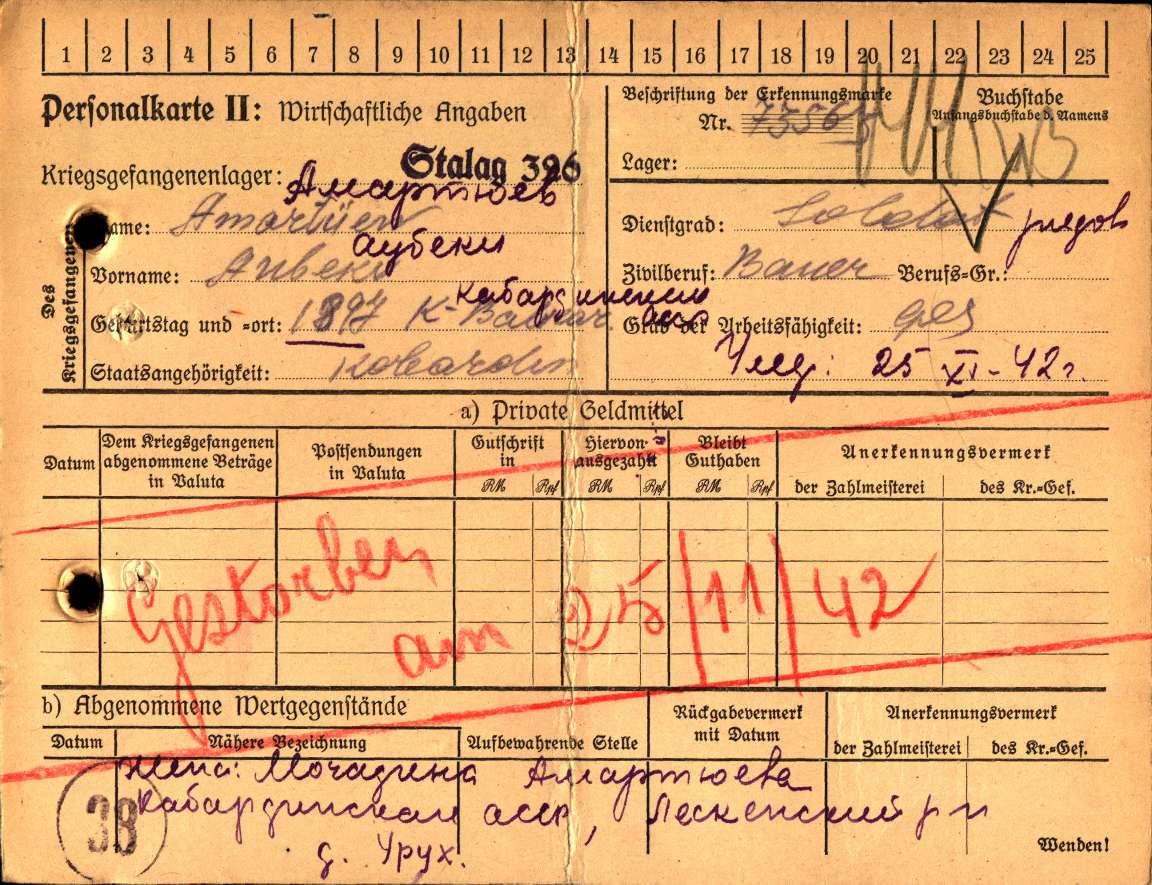 1 2 3 4 5 6 7 8 9 10 11 12 13 14 15 16 17 18 19 20 21 22 23 24 25
Personalkarte II: Wirtschaftliche Angaben
Beschriftung der Erkennungsmarke
Nr.
Buchstabe
Anfangsbuchstabe d. Namens
Kriegsgefangenenlager: Stalag 396
Lager:
Амартюев
Des Kriegsgefangenen
Name: Amartüew
Dienstgrad: Soldat рядов
аубеки
Vorname: Aubeki
Zivilberuf: Bauer Berufs-Gr.:
кабардинская асср
Geburtstag und -ort: 1897 K-Balkar.
Grad der Arbeitsfähigkeit: ges
Staatsangehörigkeit: Kobardin
Умер: 25 XI-42г.
a) Private Geldmittel
Datum
Dem Kriegsgefangenen abgenommene Beträge in Valuta
Postsendungen in Valuta
Gutschrift in
RM Rpf
Hiervon ausgezahlt
RM Rpf
Bleibt Guthaben
RM Rpf
Anerkennungsvermerk
der Zahlmeisterei des Kr.=Gef.
Gestorben
am 25/11/42
b) Abgenommene Wertgegenstände
Datum
Nähere Bezeichnung
Aufbewahrende Stelle
Rückgabevermerk mit Datum
Anerkennungsvermerk
der Zahlmeisterei des Kr.=Gef.
жена: Мочадина Амартюева
Кабардинская асср, Лескенский р-н
д. Урух.
38
Wenden!